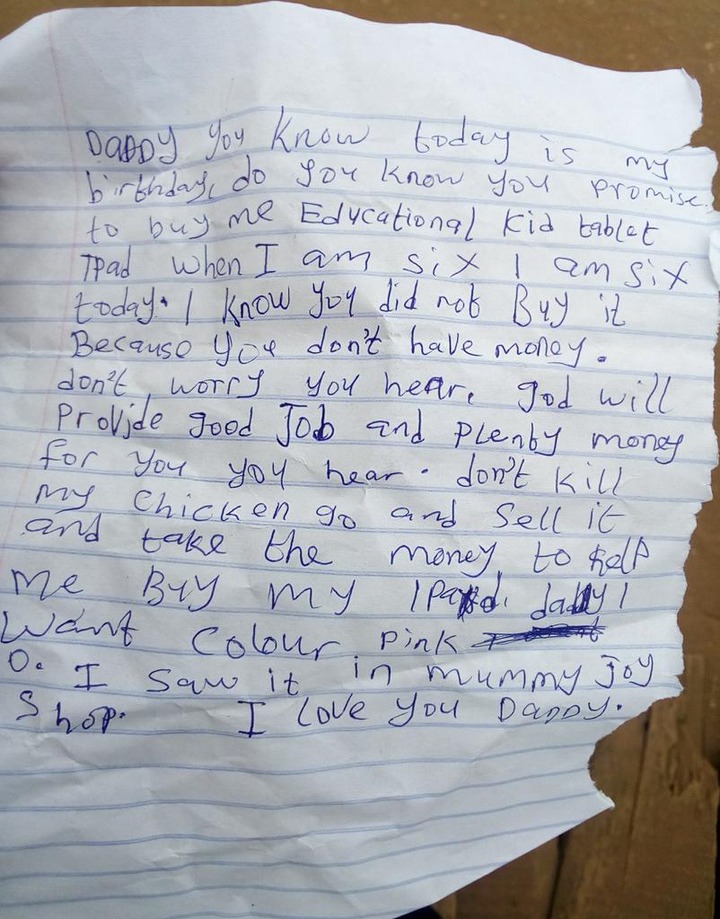 DADDY you know today is my
birthday, do you know you promise
to buy me Educational Kid tablet
Ipad when I am six I am six
today. I know you did not Buy it
Because you don't have money.
don't worry you hear, god will
Provide good Job and plenty money
for you you hear. don't kill
my chicken go and sell it
and take the money to help
me Buy my daddy I
Want Colour Pink
O. I saw it in mummy Joy
Shop. I love you Daddy.